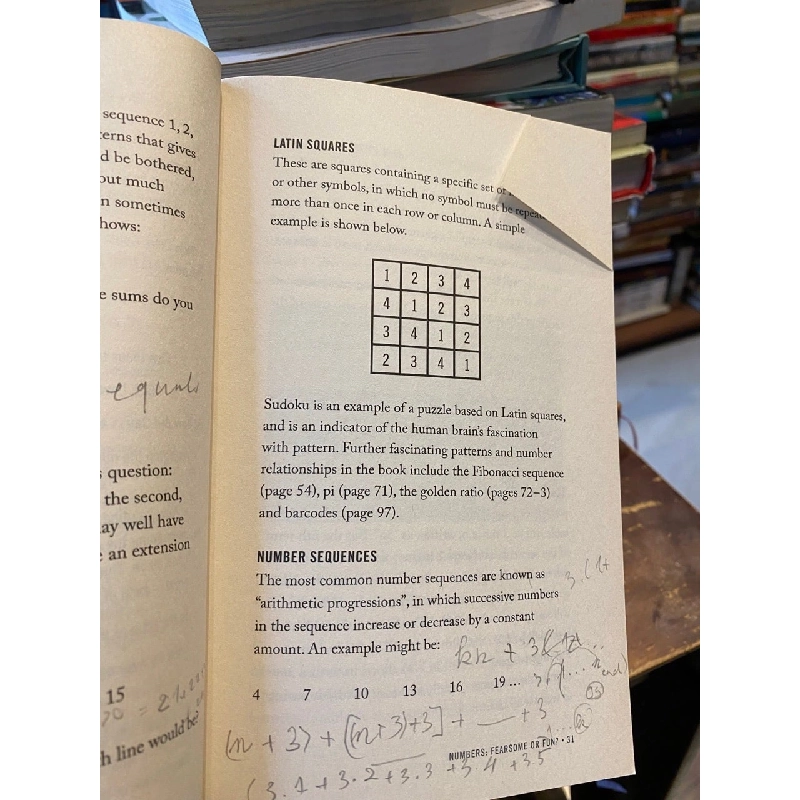 sequence 1, 2,
that gives
d be bothered,
out much
n sometimes
hows:
e sums do you
equals
question:
the second,
ay well have
an extension
15
h line would be?
LATIN SQUARES
These are squares containing a specific set
or other symbols, in which no symbol must be
more than once in each row or column. A simple
example is shown below.
1 2 3 4
4 1 2 3
3 4 1 2
2 3 4 1
Sudoku is an example of a puzzle based on Latin squares,
and is an indicator of the human brain's fascination
with pattern. Further fascinating patterns and number
relationships in the book include the Fibonacci sequence
(page 54), pi (page 71), the golden ratio (pages 72–3)
and barcodes (page 97).
NUMBER SEQUENCES
The most common number sequences are known as
"arithmetic progressions", in which successive numbers
in the sequence increase or decrease by a constant
amount. An example might be:
4 7 10 13 16 19 ...
(n + 3) + [(n+3)+3] + — + 3
NUMBERS: FEARSOME OR FUN? • 31
(3.1 + 3.2 + 3.3 + 3.4 + 3.5